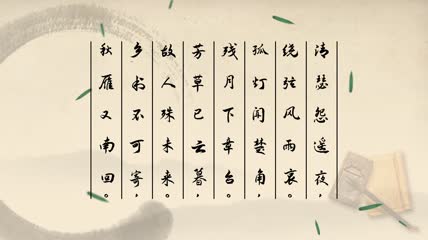 清瑟怨遥夜，
绕弦风雨哀。
孤灯闻楚角，
残月下章台。
芳草已云暮，
故人殊未来。
乡书不可寄，
秋雁又南回。